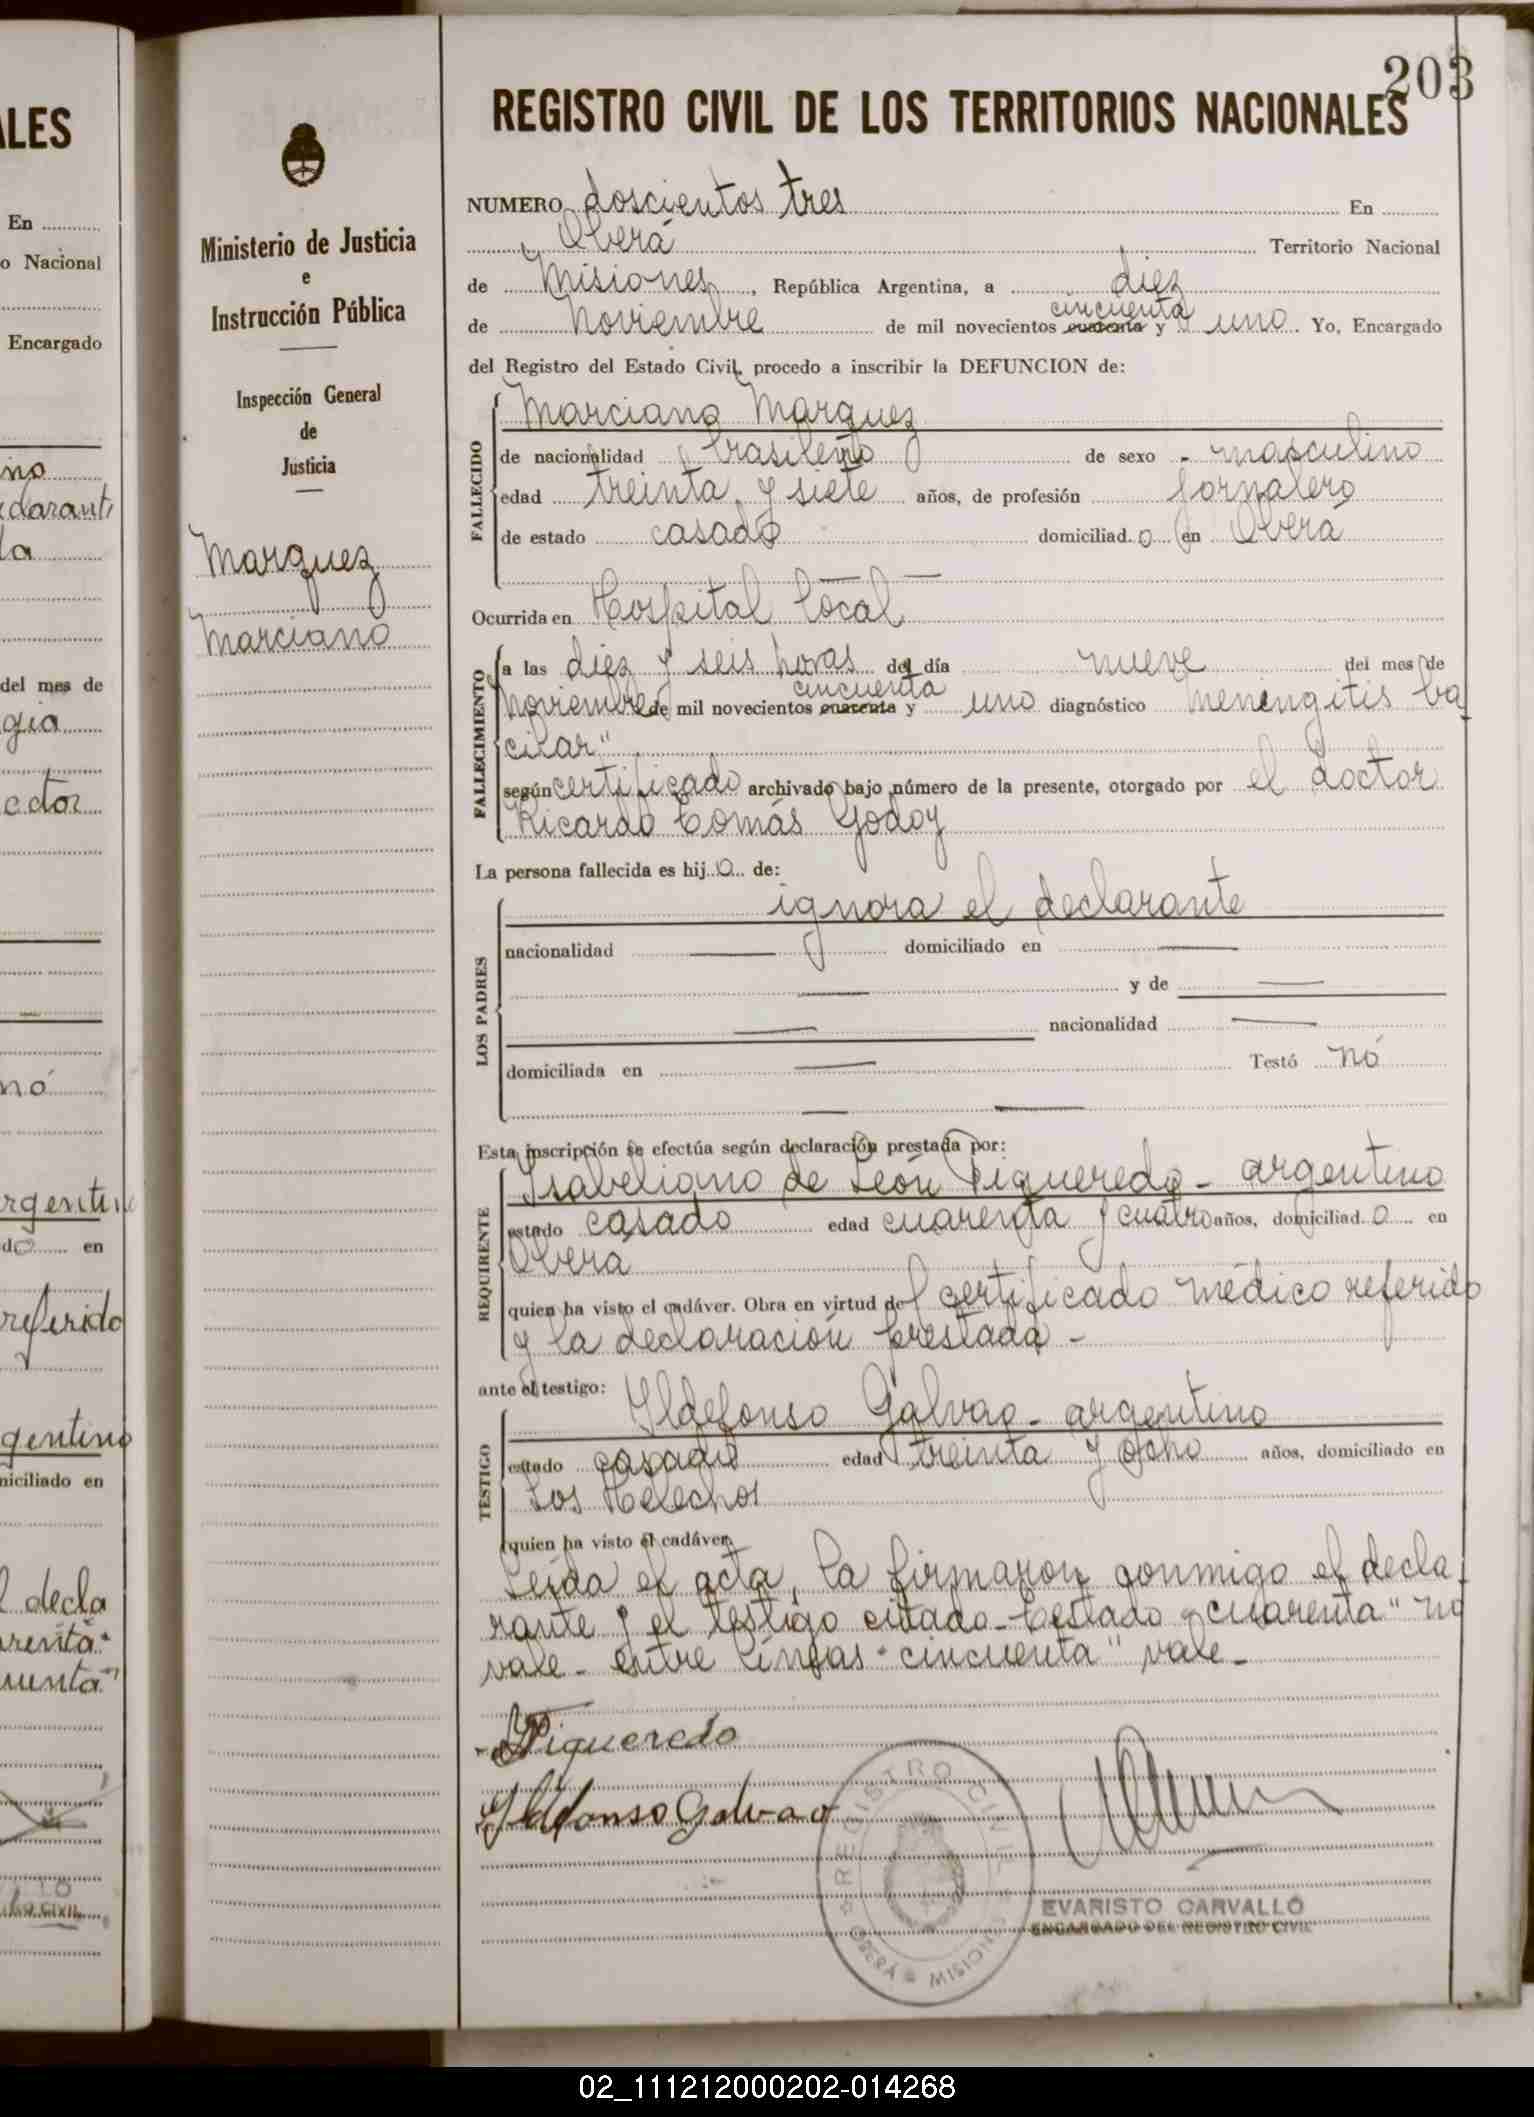 ALES
En
o Nacional
Encargado
no
darant
la
del mes de
gia
octor
nó
rgentin
do en
referido
gentino
niciliado en
l decla
renta"
uenta"
Ministerio de Justicia
e
Instrucción Pública
Inspección General
de
Justicia
Marquez
Marciano
203
REGISTRO CIVIL DE LOS TERRITORIOS NACIONALES
NUMERO doscientos tres En
Oberá Territorio Nacional
de Misiones, República Argentina, a diez
cincuenta
de Noviembre de mil novecientos cuarenta y uno. Yo, Encargado
del Registro del Estado Civil, procedo a inscribir la DEFUNCION de:
FALLECIDO
Marciano Marquez
de nacionalidad brasileño de sexo - masculino
edad treinta y siete años, de profesión jornalero
de estado casado domiciliad o en Oberá
Ocurrida en Hospital local
FALLECIMIENTO
a las diez y seis horas del día nueve del mes de
cincuenta
Noviembre de mil novecientos cuarenta y uno diagnóstico "meningitis ba
cilar"
según certificado archivado bajo número de la presente, otorgado por el doctor
Ricardo Tomás Godoy
La persona fallecida es hij o de:
LOS PADRES
ignora el declarante
nacionalidad — domiciliado en —
— y de —
— nacionalidad —
domiciliada en — Testó nó
— —
Esta inscripción se efectúa según declaración prestada por:
REQUIRENTE
Isabeliano de León Figueredo - argentino
estado casado edad cuarenta y cuatro años, domiciliad o en
Oberá
quien ha visto el cadáver. Obra en virtud del certificado médico referido
y la declaración prestada -
ante el testigo:
TESTIGO
Ildefonso Galvao - argentino
estado casado edad treinta y ocho años, domiciliado en
Los Helechos
quien ha visto el cadáver
Leída el acta, la firmaron conmigo el decla
rante y el testigo citado - Testado "cuarenta" no
vale - entre líneas "cincuenta" vale -
Figueredo
Ildefonso Galvao
REGISTRO CIVIL
OBERÁ MISIONES
EVARISTO CARVALLO
ENCARGADO DEL REGISTRO CIVIL
02_111212000202-014268